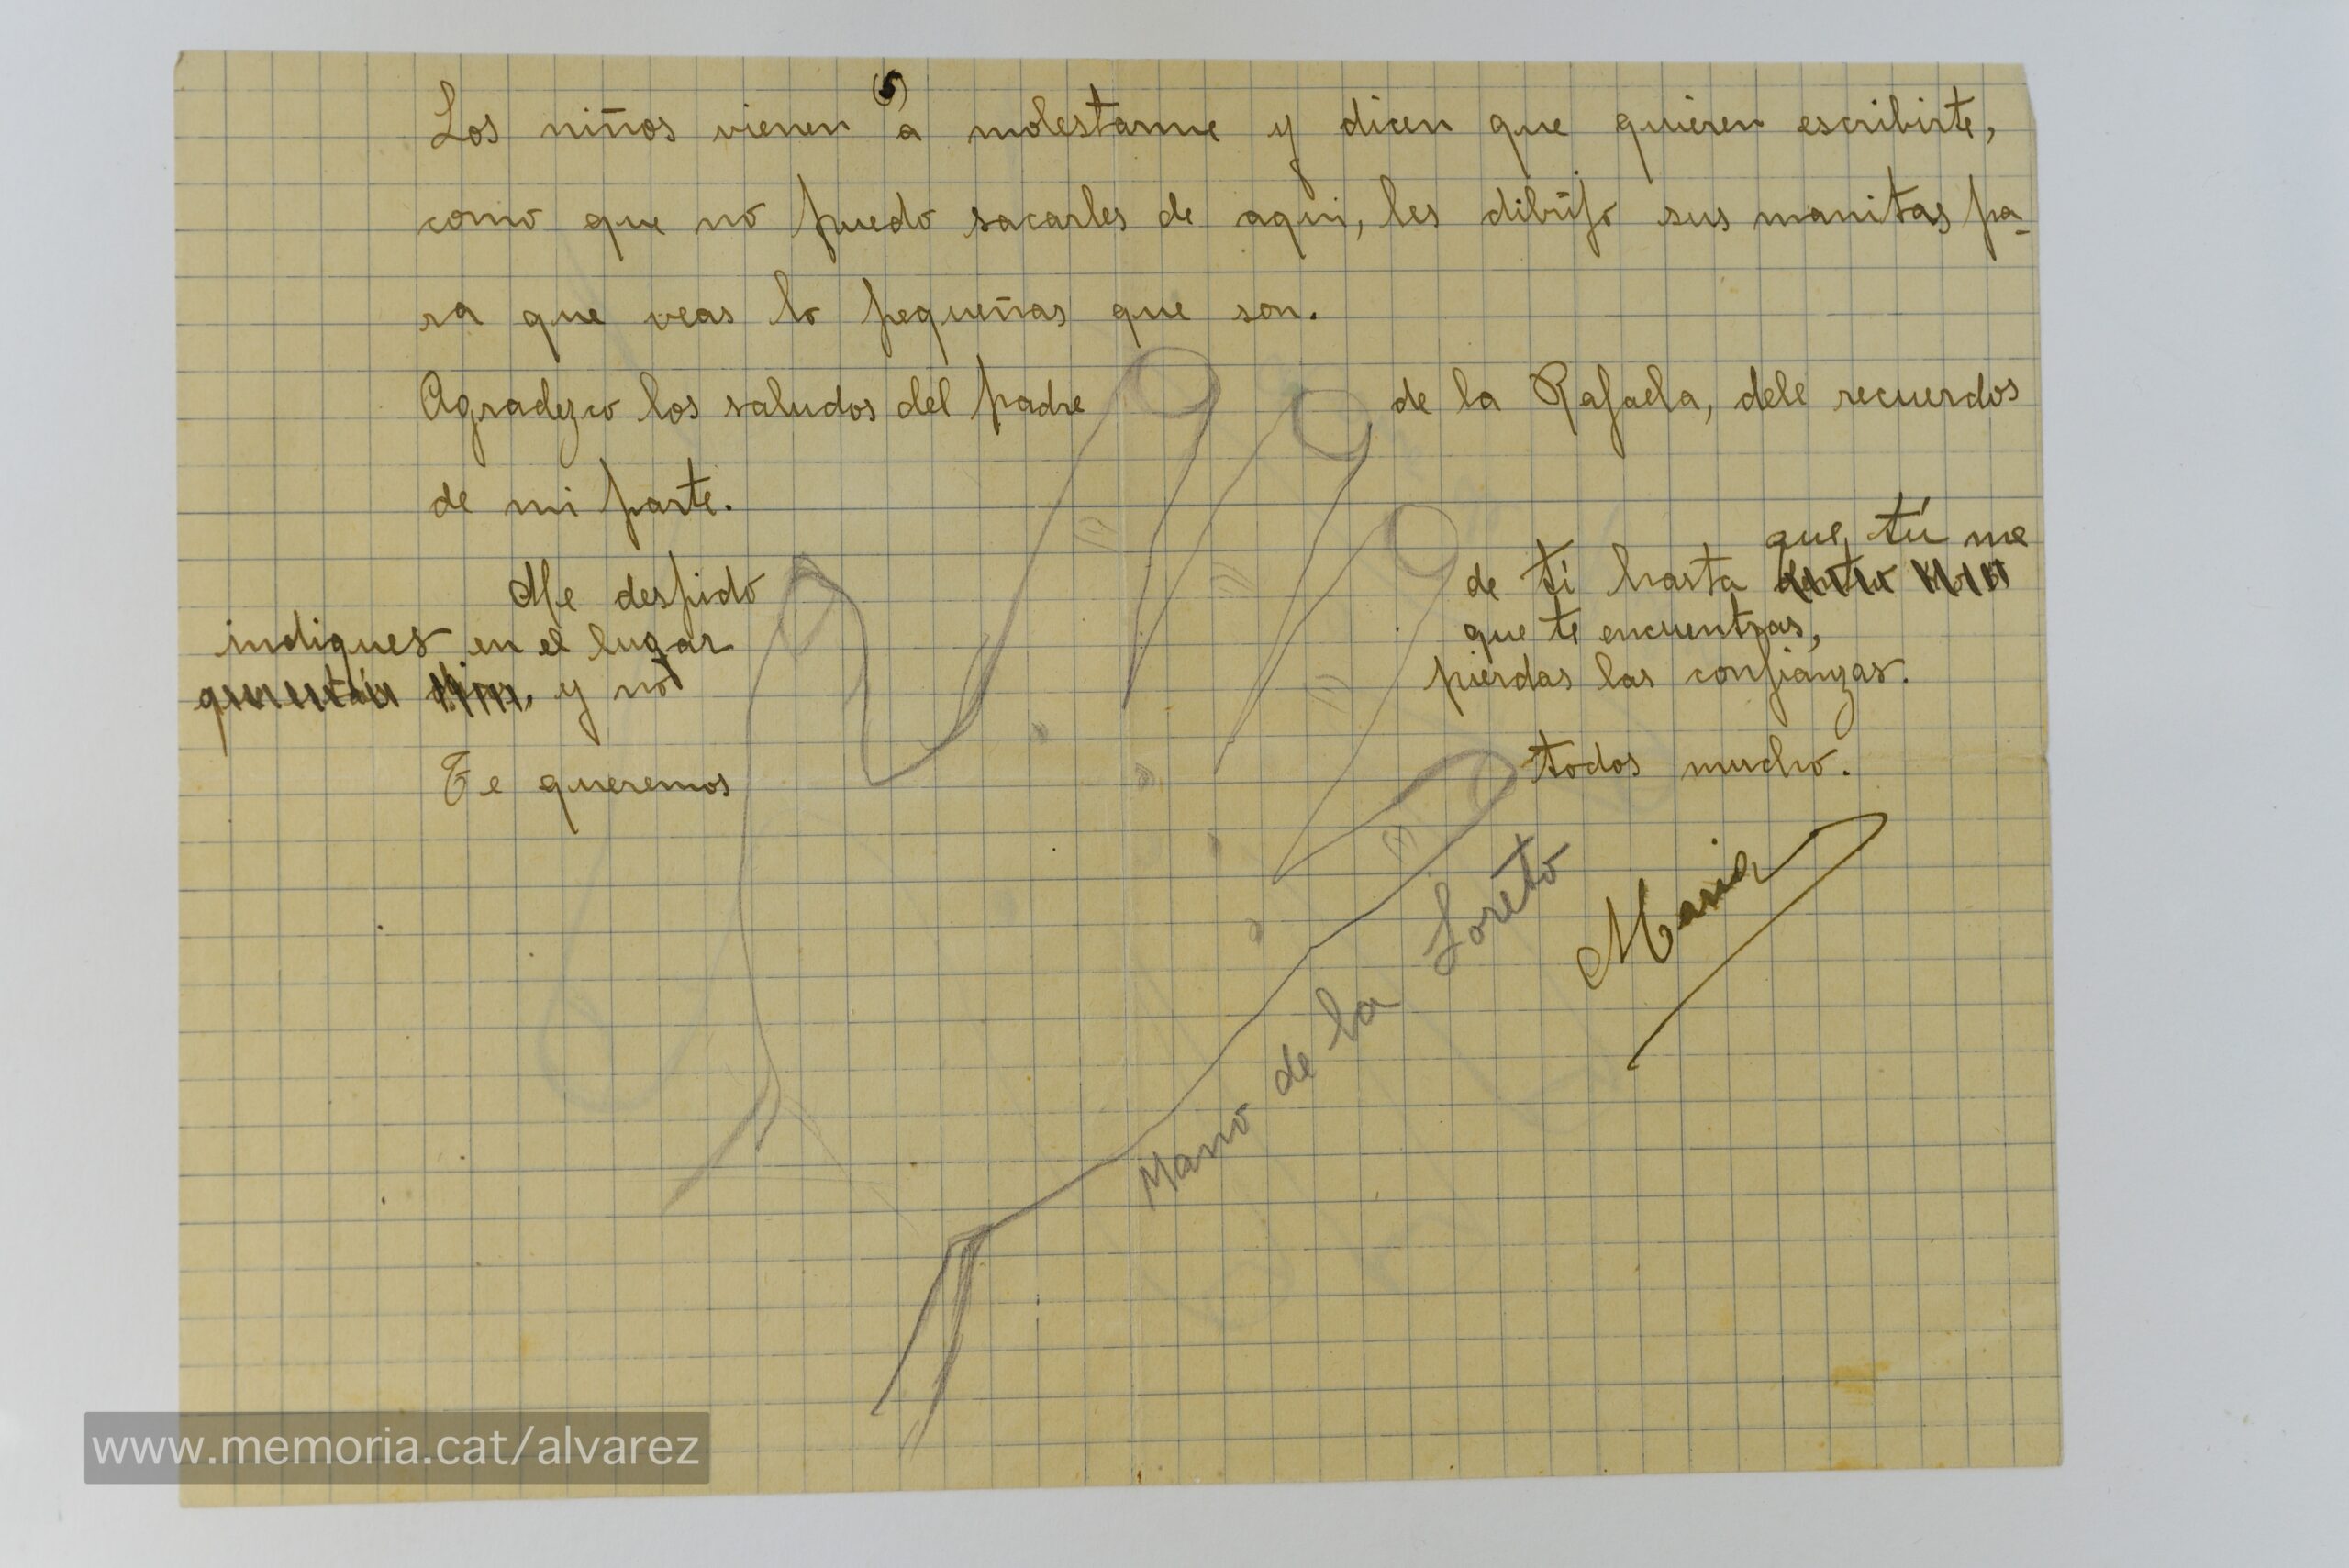 (5)
Los niños vienen a molestarme y dicen que quieren escribirte,
como que no puedo sacarles de aqui, les dibujo sus manitas pa-
ra que veas lo pequeñas que son.
Agradezco los saludos del padre de la Rafaela, dele recuerdos
de mi parte.
que tú me
Me despido de ti hasta
indiques en el lugar que te encuentras,
y no pierdas las confianzas.
Te queremos todos mucho.
Maria
Mano de la Loreto
www.memoria.cat/alvarez